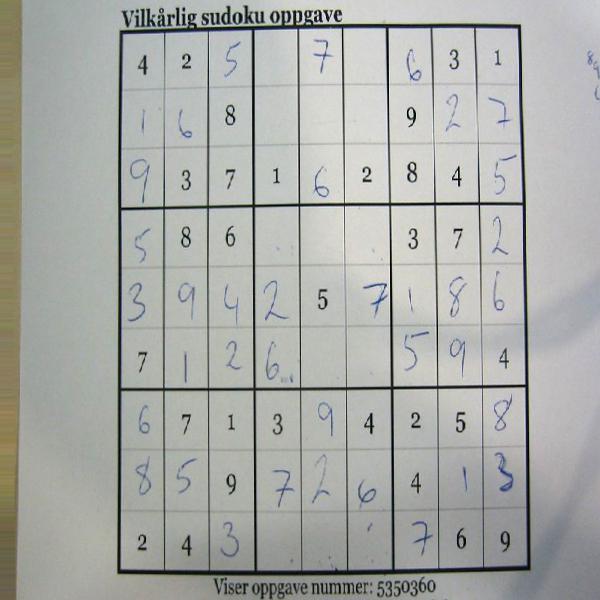 Vilkårlig sudoku oppgave
4 2 5 7 6 3 1
1 6 8 9 2 7
9 3 7 1 6 2 8 4 5
5 8 6 3 7 2
3 9 4 2 5 7 1 8 6
7 1 2 6 5 9 4
6 7 1 3 9 4 2 5 8
8 5 9 7 2 6 4 1 3
2 4 3 7 6 9
Viser oppgave nummer: 5350360